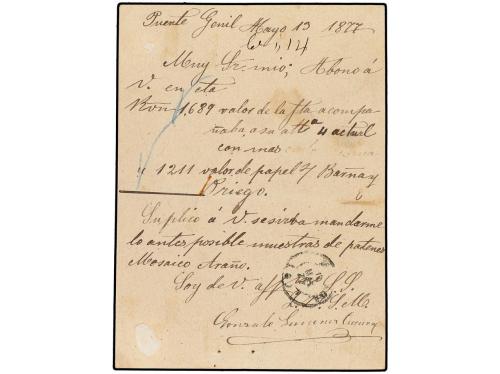 Puente Genil Mayo 13 1877
Muy Sr. mio; Abono á
V. en cta
Rvn 1,689 valor de la fta acompa
ñaba a su atta 4 actual
con mas
" 1211 valor de papel s/ Barna y
Priego.
Suplico á V. se sirva mandarme
lo antes posible muestras de patenes
Mosaico Araño.
Soy de V. aff S. S.
S. M.
Gonzalo